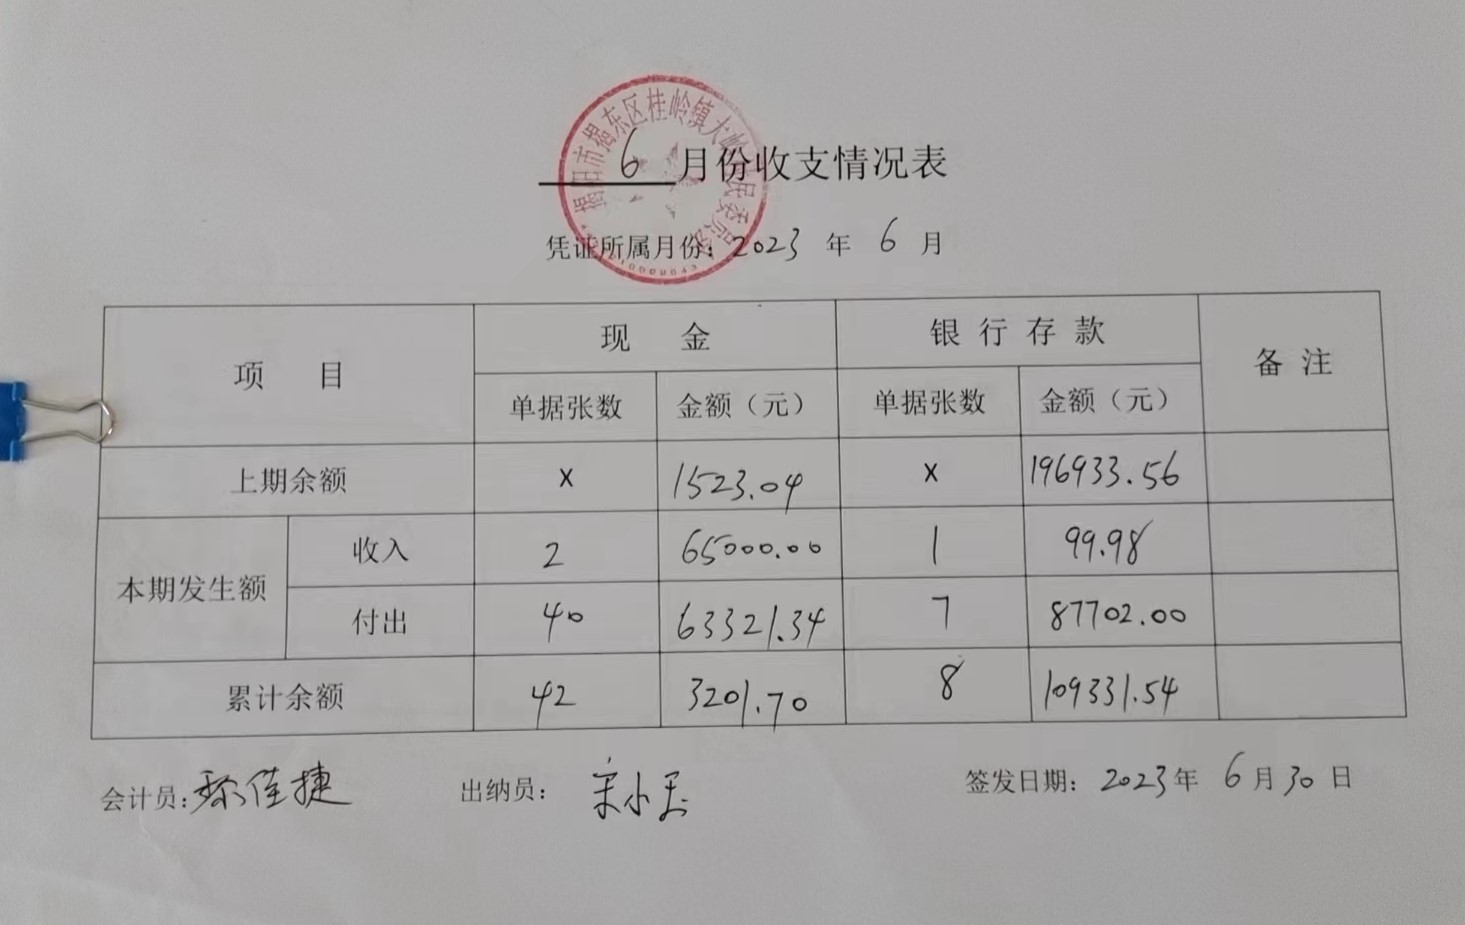 揭阳市揭东区桂岭镇大岭村民委员会
6月份收支情况表
凭证所属月份：2023 年 6 月
项 目 现 金 银行存款 备注
单据张数 金额（元） 单据张数 金额（元）
上期余额 x 1523.04 x 196933.56
本期发生额 收入 2 65000.00 1 99.98
付出 40 63321.34 7 87702.00
累计余额 42 3201.70 8 109331.54
会计员： 佳捷 出纳员： 小 签发日期：2023年 6月30日